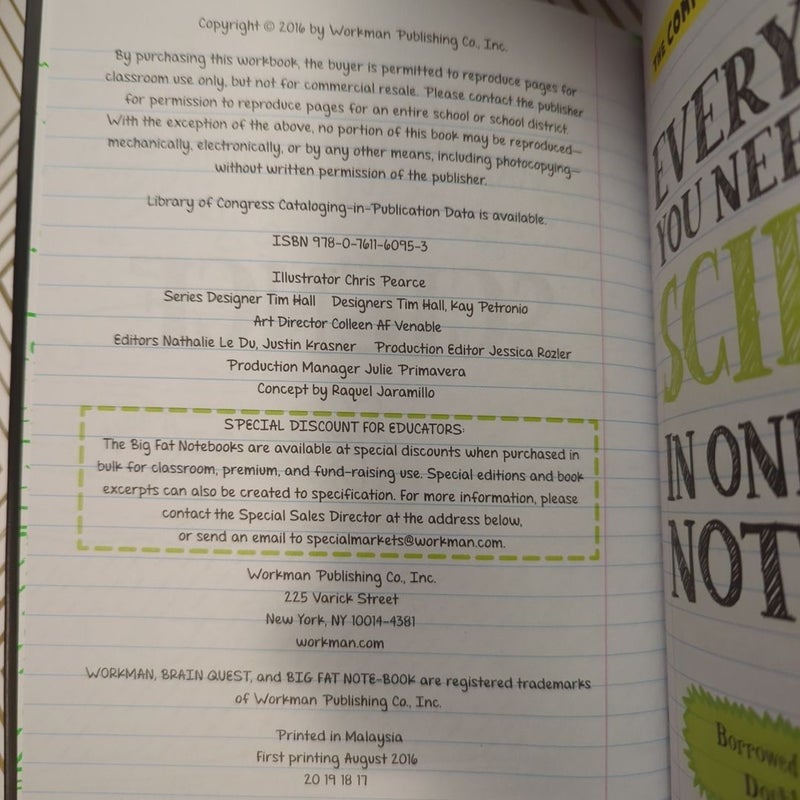 Copyright © 2016 by Workman Publishing Co., Inc.
By purchasing this workbook, the buyer is permitted to reproduce pages for
classroom use only, but not for commercial resale. Please contact the publisher
for permission to reproduce pages for an entire school or school district.
With the exception of the above, no portion of this book may be reproduced—
mechanically, electronically, or by any other means, including photocopying—
without written permission of the publisher.
Library of Congress Cataloging-in-Publication Data is available.
ISBN 978-0-7611-6095-3
Illustrator Chris Pearce
Series Designer Tim Hall Designers Tim Hall, Kay Petronio
Art Director Colleen AF Venable
Editors Nathalie Le Du, Justin Krasner Production Editor Jessica Rozler
Production Manager Julie Primavera
Concept by Raquel Jaramillo
SPECIAL DISCOUNT FOR EDUCATORS:
The Big Fat Notebooks are available at special discounts when purchased in
bulk for classroom, premium, and fund-raising use. Special editions and book
excerpts can also be created to specification. For more information, please
contact the Special Sales Director at the address below,
or send an email to specialmarkets@workman.com.
Workman Publishing Co., Inc.
225 Varick Street
New York, NY 10014-4381
workman.com
WORKMAN, BRAIN QUEST, and BIG FAT NOTE-BOOK are registered trademarks
of Workman Publishing Co., Inc.
Printed in Malaysia
First printing August 2016
20 19 18 17
THE
EVERY
YOU
IN
Borrowed